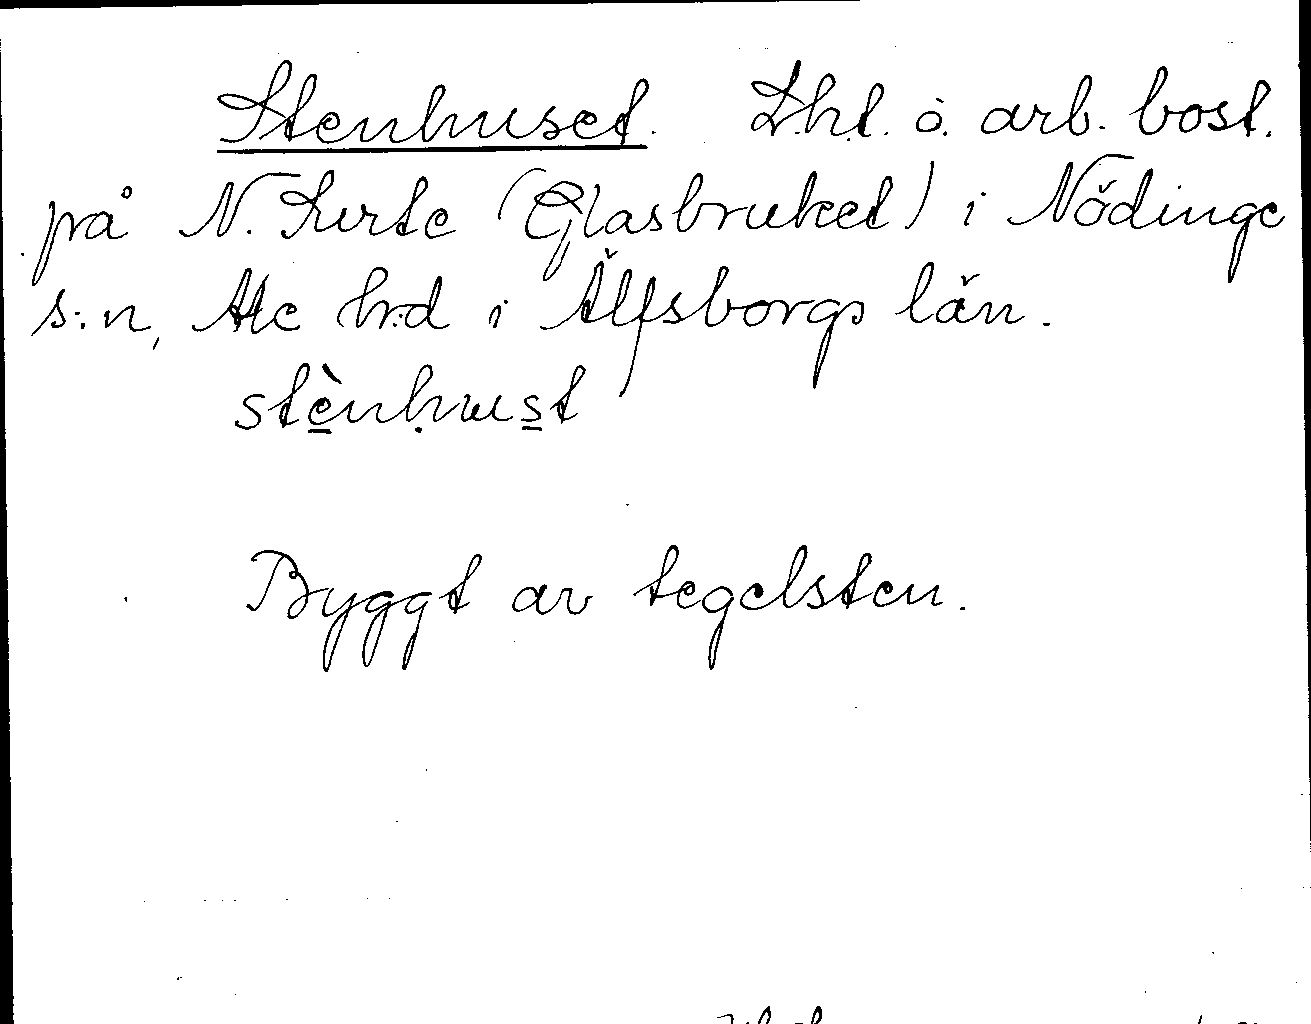 Stenhuset. Lht. o. arb. bost.
på N. Surte (Glasbruket) i Nödinge
s:n, Ale h:d i Älfsborgs län.
stènhust
Byggt av tegelsten.